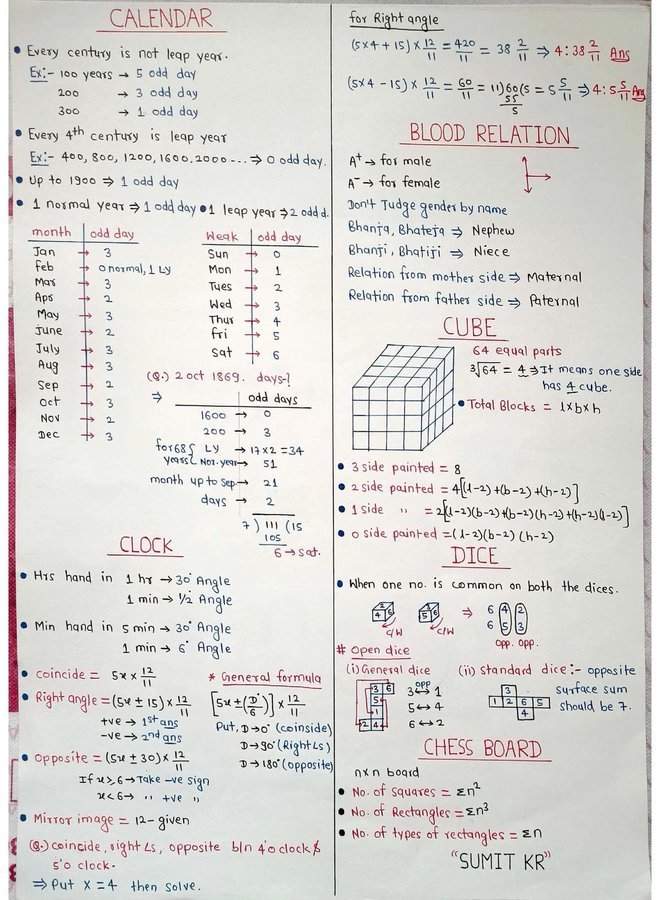 CALENDAR
• Every century is not leap year.
Ex:- 100 years → 5 odd day
200 → 3 odd day
300 → 1 odd day
• Every 4th century is leap year
Ex:- 400, 800, 1200, 1600, 2000 --- ⇒ 0 odd day.
• Up to 1900 ⇒ 1 odd day
• 1 normal year ⇒ 1 odd day • 1 leap year ⇒ 2 odd d.
month odd day
Jan → 3
feb → 0 normal, 1 LY
Mar → 3
Apr → 2
May → 3
june → 2
July → 3
Aug → 3
Sep → 2
Oct → 3
Nov → 2
Dec → 3
Weak odd day
Sun → 0
Mon → 1
Tues → 2
Wed → 3
Thur → 4
fri → 5
Sat → 6
(Q.) 2 oct 1869. days-?
⇒ odd days
1600 → 0
200 → 3
for 68 years { LY → 17×2 = 34
Nor. year → 51
month up to Sep → 21
days → 2
7 ) 111 (15
105
6 → sat.
CLOCK
• Hrs hand in 1 hr → 30° Angle
1 min → 1/2° Angle
• Min hand in 5 min → 30° Angle
1 min → 6° Angle
• coincide = 5x × 12/11
• Right angle = (5x ± 15) × 12/11
+ve → 1st ans
-ve → 2nd ans
• opposite = (5x ± 30) × 12/11
If x > 6 → Take -ve sign
x < 6 → " +ve "
* General formula
[5x ± (D°/6)] × 12/11
Put, D → 0° (coinside)
D → 90° (Right ∠s)
D → 180° (opposite)
• Mirror image = 12 - given
(Q.) coincide, right ∠s, opposite b/n 4'o clock & 5'o clock.
⇒ Put X = 4 then solve.
for Right angle
(5×4 + 15) × 12/11 = 420/11 = 38 2/11 ⇒ 4:38 2/11 Ans
(5×4 - 15) × 12/11 = 60/11 = 11)60(5 = 5 5/11 ⇒ 4:5 5/11 Ans
55
5
BLOOD RELATION
A⁺ → for male
A⁻ → for female
Don't Judge gender by name
Bhanja, Bhateja ⇒ Nephew
Bhanji, Bhatiji ⇒ Niece
Relation from mother side ⇒ Maternal
Relation from father side ⇒ Paternal
CUBE
64 equal parts
³√64 = 4 ⇒ It means one side
has 4 cube.
• Total Blocks = l×b×h
• 3 side painted = 8
• 2 side painted = 4[(l-2)+(b-2)+(h-2)]
• 1 side " = 2[(l-2)(b-2)+(b-2)(h-2)+(h-2)(l-2)]
• 0 side painted = (l-2)(b-2)(h-2)
DICE
• When one no. is common on both the dices.
⇒ 6 4 2
6 5 3
c/w c/w opp. opp.
# Open dice
(i) General dice
3 6
5
1
2 4
opp
3 ↔ 1
5 ↔ 4
6 ↔ 2
(ii) Standard dice:- opposite
surface sum
should be 7.
3
1 2 6 5
4
CHESS BOARD
n×n board
• No. of squares = Σn²
• No. of Rectangles = Σn³
• No. of types of rectangles = Σn
"SUMIT KR"